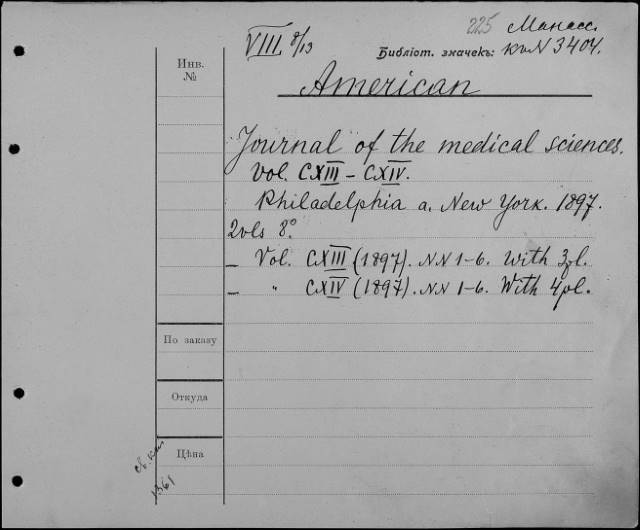 225 Манасс.
VIII. 8/13 Библіот. значекъ: кn N 3404.
Инв.
№
American
Journal of the medical sciences.
Vol. CXIII – CXIV.
Philadelphia a. New York. 1897.
2 vls 8°
– Vol. CXIII (1897). NN 1–6. With 3 pl.
– " CXIV (1897). NN 1–6. With 4 pl.
По заказу
Откуда
Цѣна
1361